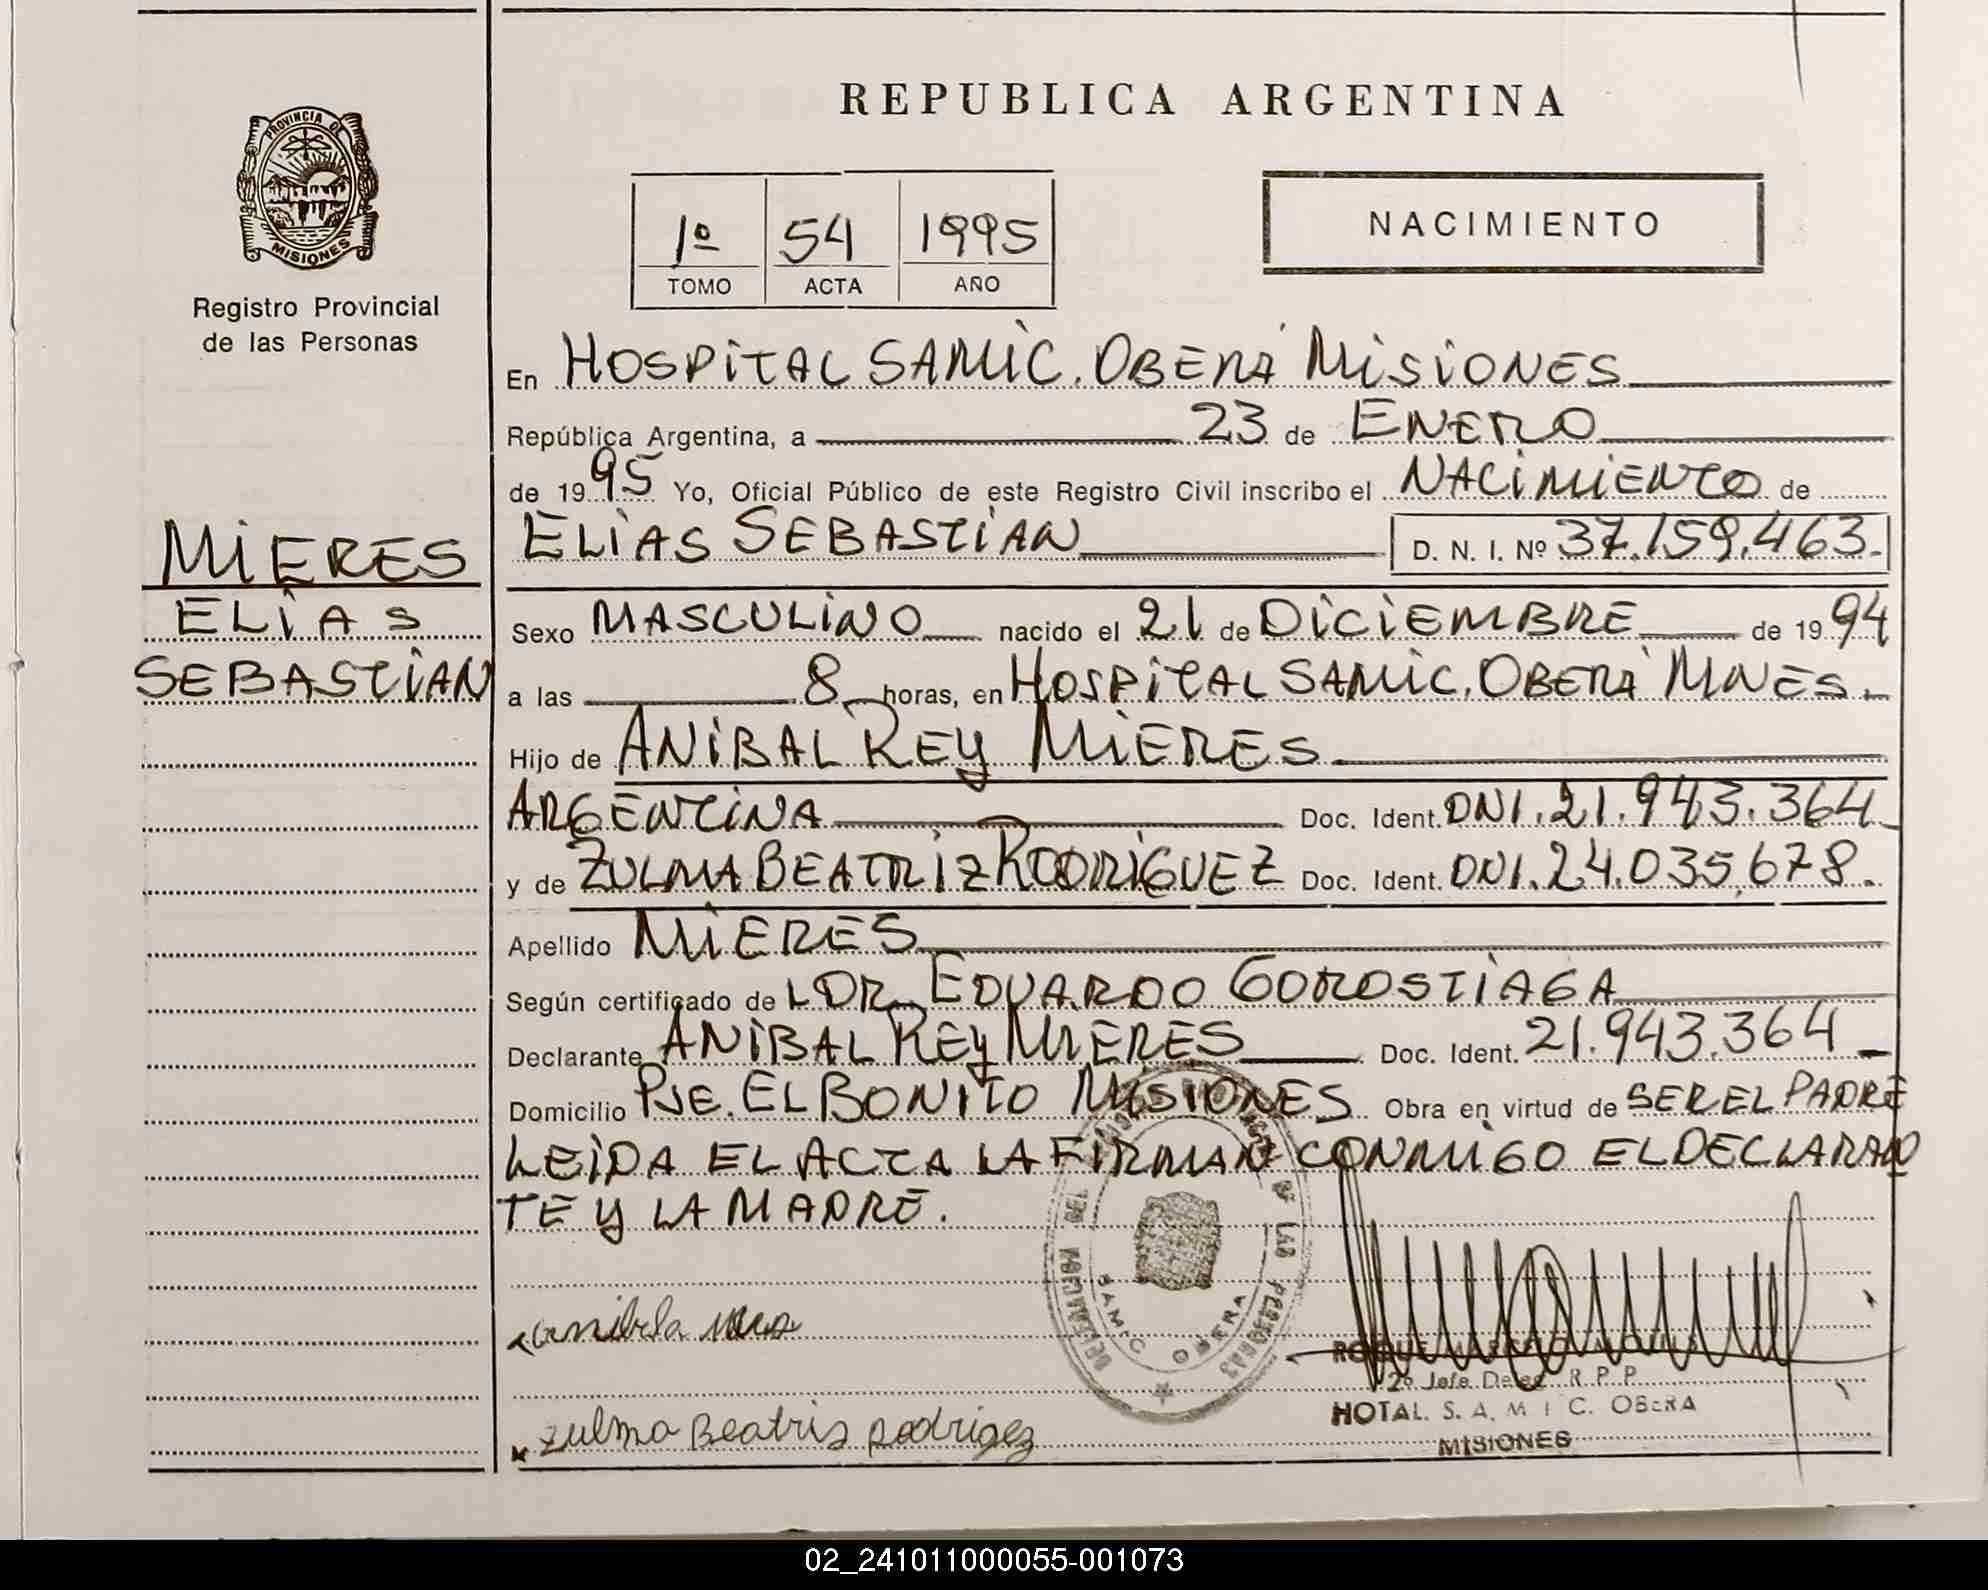 REPUBLICA ARGENTINA
PROVINCIA DE
MISIONES
Registro Provincial
de las Personas
1º 54 1995
TOMO ACTA AÑO
NACIMIENTO
En HOSPITAL SAMIC. OBERÁ MISIONES
República Argentina, a 23 de ENERO
de 1995 Yo, Oficial Público de este Registro Civil inscribo el NACIMIENTO de
MIERES
ELIAS
SEBASTIAN
ELIAS SEBASTIAN D. N. I. Nº 37.159.463.
Sexo MASCULINO nacido el 21 de DICIEMBRE de 1994
a las 8 horas, en HOSPITAL SAMIC. OBERÁ MNES.
Hijo de ANIBAL REY MIERES
ARGENTINA Doc. Ident. DNI. 21.943.364
y de ZULMA BEATRIZ RODRIGUEZ Doc. Ident. DNI. 24.035.678.
Apellido MIERES
Según certificado de DR. EDUARDO GOROSTIAGA
Declarante ANIBAL REY MIERES Doc. Ident. 21.943.364
Domicilio PJE. EL BONITO MISIONES Obra en virtud de SER EL PADRE
LEIDA EL ACTA LA FIRMAN CONMIGO EL DECLARAN
TE Y LA MADRE.
DE LAS PERSONAS
SAMIC OBERA
ROQUE
2º Jefe Deleg. R. P. P.
HOTAL. S. A. M I C. OBERA
MISIONES
x zulma Beatris Rodrigez
02_241011000055-001073